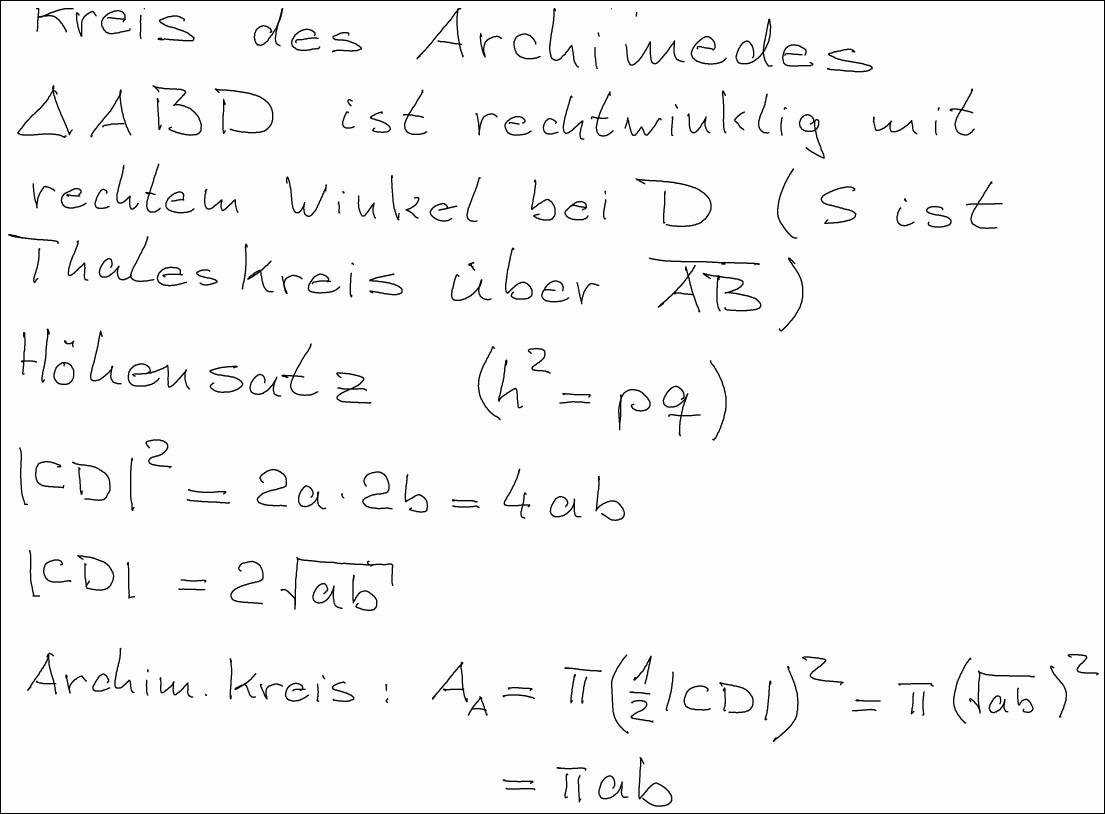 Kreis des Archimedes
△ABD ist rechtwinklig mit
rechtem Winkel bei D (S ist
Thaleskreis über A̅B̅)
Höhensatz (h² = pq)
|CD|² = 2a·2b = 4ab
|CD| = 2√ab
Archim. kreis: A_A = π(½|CD|)² = π(√ab)²
= πab